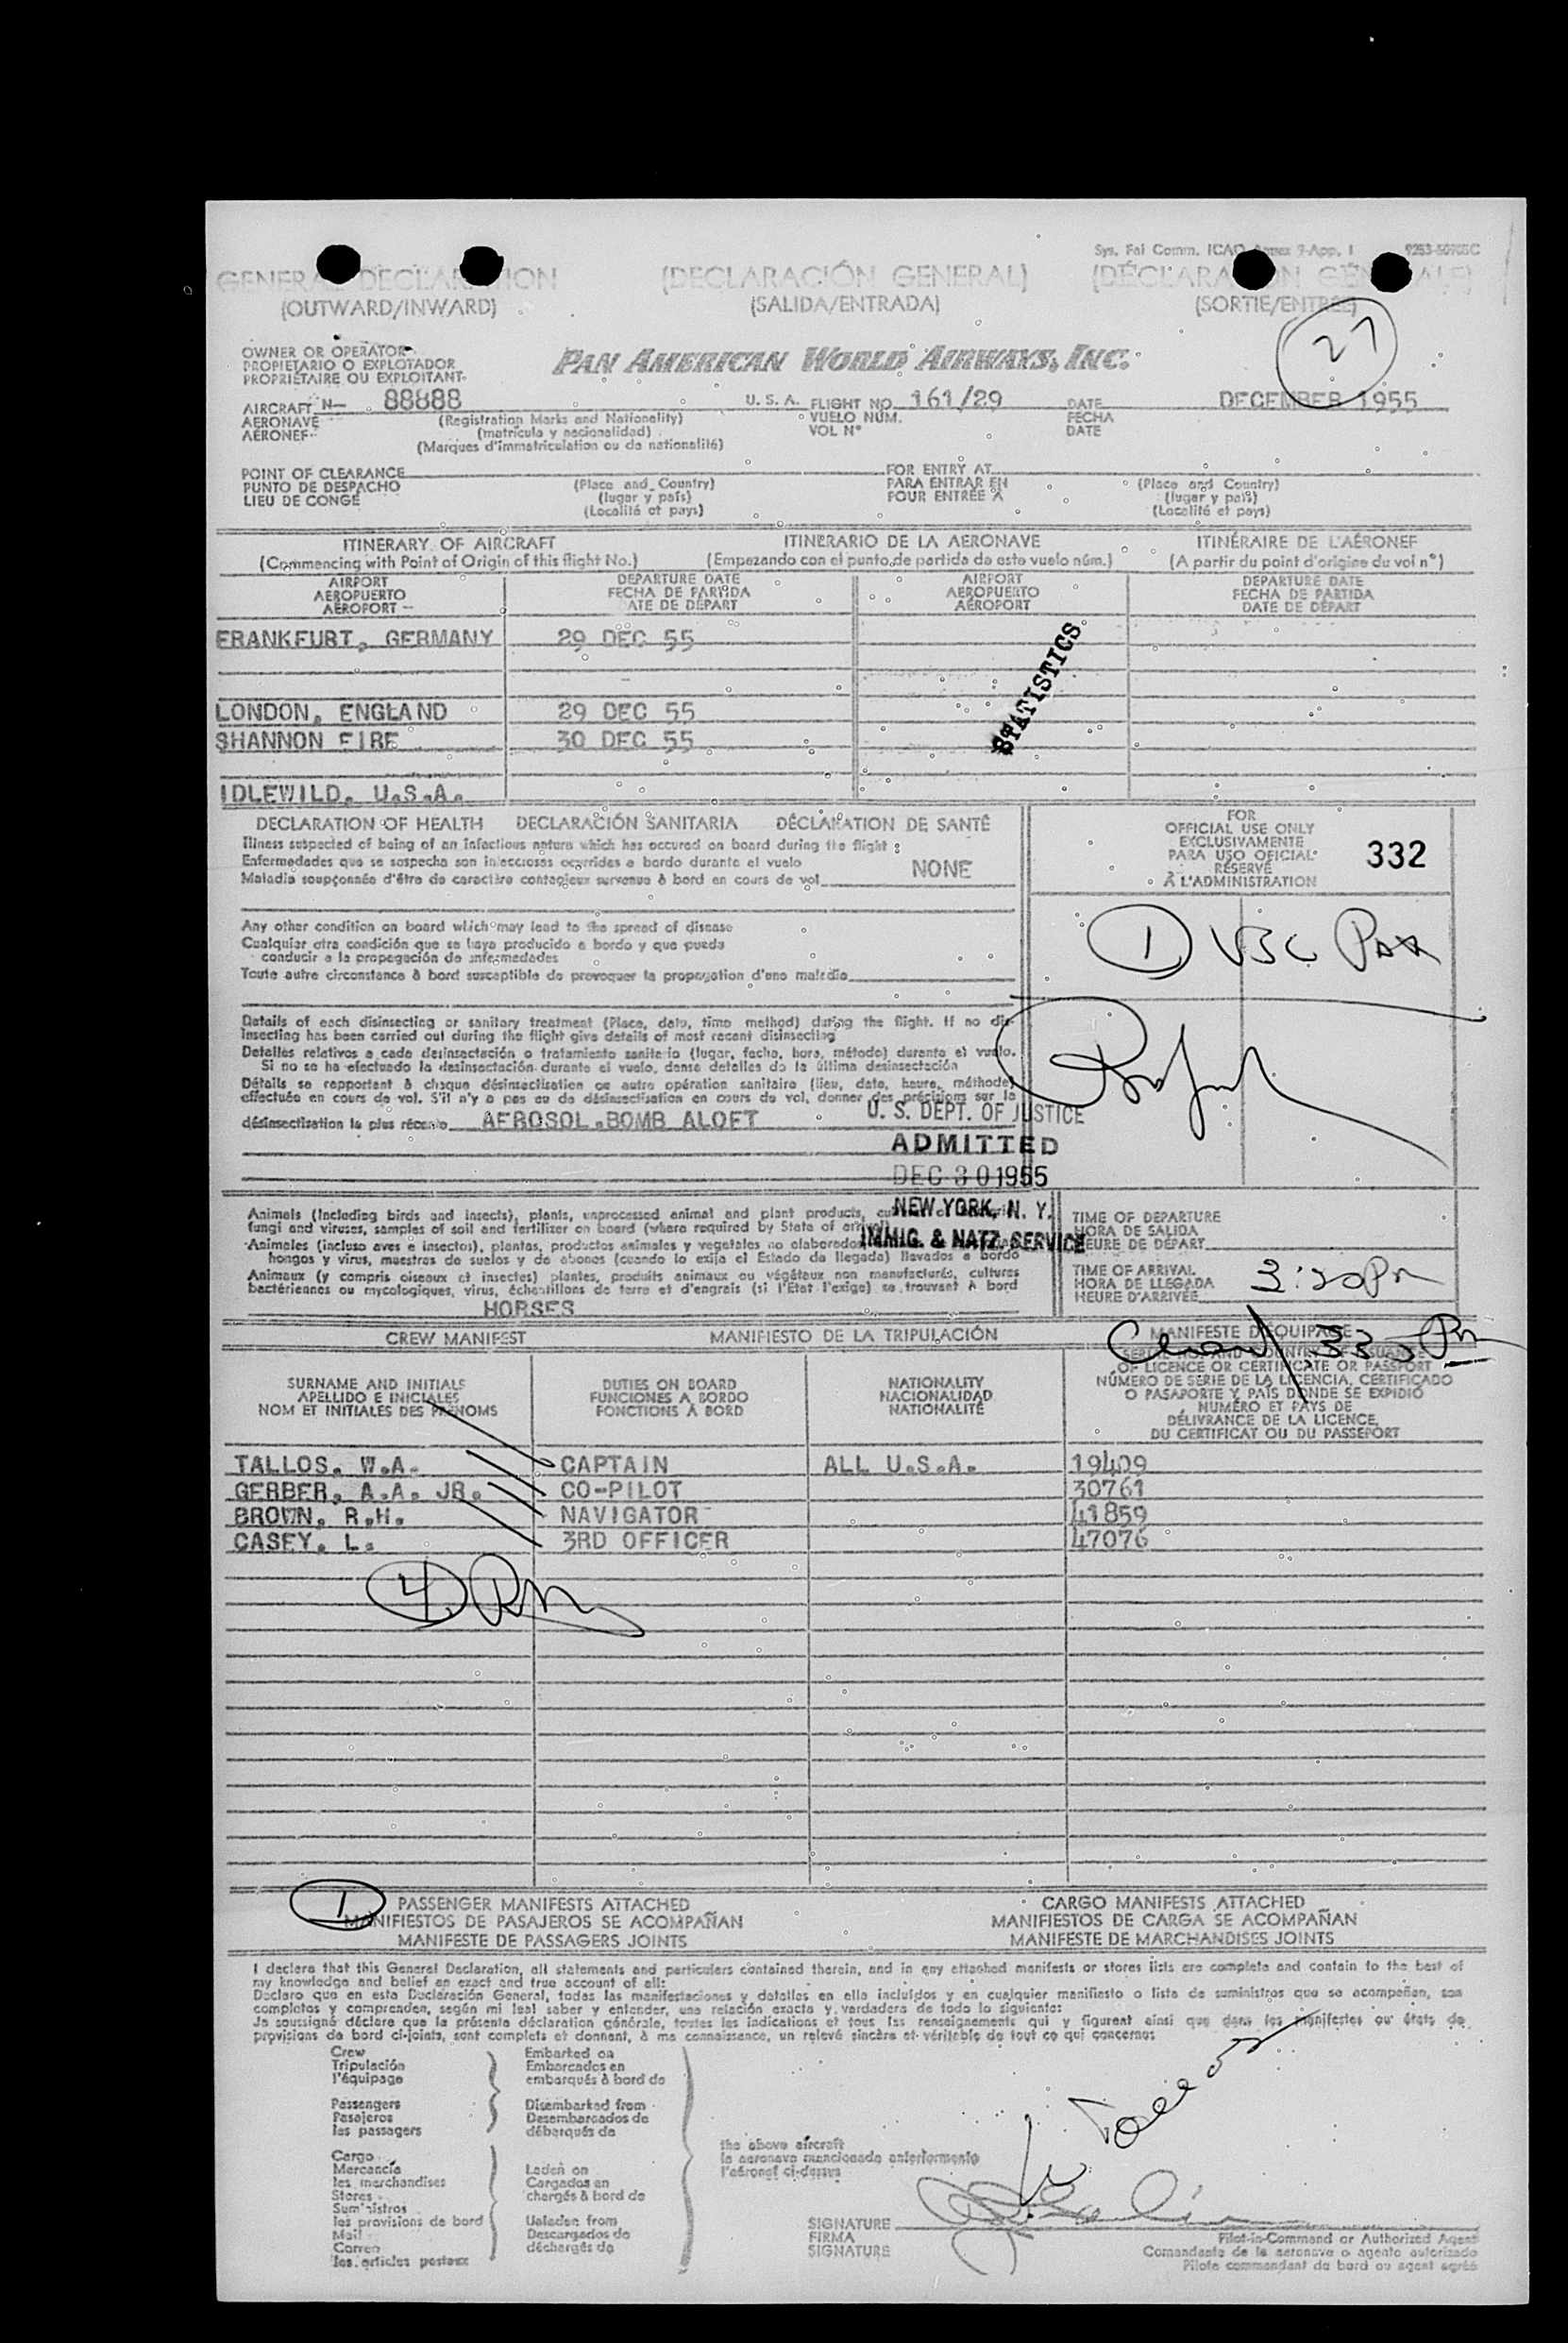 Sys. Fal Comm. ICAO Annex 9-App. I
GENERAL DECLARATION (DECLARACIÓN GENERAL) (DÉCLARATION GÉNÉRALE)
(OUTWARD/INWARD) (SALIDA/ENTRADA) (SORTIE/ENTRÉE)
27
OWNER OR OPERATOR
PROPIETARIO O EXPLOTADOR
PROPRIÉTAIRE OU EXPLOITANT
PAN AMERICAN WORLD AIRWAYS, INC.
AIRCRAFT N— 88888 U. S. A. FLIGHT NO. 161/29 DATE DECEMBER 1955
AERONAVE (Registration Marks and Nationality) VUELO NÚM. FECHA
AÉRONEF (matrícula y nacionalidad) VOL Nº DATE
(Marques d'immatriculation ou de nationalité)
POINT OF CLEARANCE FOR ENTRY AT
PUNTO DE DESPACHO (Place and Country) PARA ENTRAR EN (Place and Country)
LIEU DE CONGÉ (lugar y país) POUR ENTRÉE À (lugar y país)
(Localité et pays) (Localité et pays)
ITINERARY OF AIRCRAFT ITINERARIO DE LA AERONAVE ITINÉRAIRE DE L'AÉRONEF
(Commencing with Point of Origin of this flight No.) (Empezando con el punto de partida de este vuelo núm.) (A partir du point d'origine du vol nº)
AIRPORT DEPARTURE DATE AIRPORT DEPARTURE DATE
AEROPUERTO FECHA DE PARTIDA AEROPUERTO FECHA DE PARTIDA
AÉROPORT ATE DE DÉPART AÉROPORT DATE DE DÉPART
FRANKFURT, GERMANY 29 DEC 55
STATISTICS
LONDON, ENGLAND 29 DEC 55
SHANNON EIRE 30 DEC 55
IDLEWILD, U.S.A.
DECLARATION OF HEALTH DECLARACIÓN SANITARIA DÉCLARATION DE SANTÉ
Illness suspected of being of an infectious nature which has occured on board during the flight
Enfermedades que se sospecha son infecciosas ocurridas a bordo durante el vuelo
Maladie soupçonnée d'être de caractère contagieux survenue à bord en cours de vol NONE
FOR
OFFICIAL USE ONLY
EXCLUSIVAMENTE
PARA USO OFICIAL
RÉSERVÉ
À L'ADMINISTRATION
332
Any other condition on board which may lead to the spread of disease
Cualquier otra condición que se haya producido a bordo y que pueda
conducir a la propagación de enfermedades
Toute autre circonstance à bord susceptible de provoquer la propagation d'une maladie
1
Details of each disinsecting or sanitary treatment (Place, date, time method) during the flight. If no dis-
insecting has been carried out during the flight give details of most recent disinsecting
Detalles relativos a cada desinsectación o tratamiento sanitario (lugar, fecha, hora, método) durante el vuelo.
Si no se ha efectuado la desinsectación durante el vuelo, dense detalles de la última desinsectación
Détails se rapportant à chaque désinsectisation ou autre opération sanitaire (lieu, date, heure, méthode)
effectuée en cours de vol. S'il n'y a pas eu de désinsectisation en cours de vol, donner des précisions sur la
désinsectisation la plus récente AEROSOL BOMB ALOFT
U. S. DEPT. OF JUSTICE
ADMITTED
DEC 30 1955
NEW YORK, N. Y.
IMMIG. & NATZ. SERVICE
Animals (Including birds and insects), plants, unprocessed animal and plant products,
fungi and viruses, samples of soil and fertilizer on board (where required by State of arrival)
Animales (incluso aves e insectos), plantas, productos animales y vegetales no elaborados
hongos y virus, muestras de suelos y de abonos (cuando lo exija el Estado de llegada) llevados a bordo
Animaux (y compris oiseaux et insectes) plantes, produits animaux ou végétaux non manufacturés, cultures
bactériennes ou mycologiques, virus, échantillons de terre et d'engrais (si l'Etat l'exige) se trouvant à bord
HORSES
TIME OF DEPARTURE
HORA DE SALIDA
HEURE DE DÉPART
TIME OF ARRIVAL
HORA DE LLEGADA
HEURE D'ARRIVÉE
CREW MANIFEST MANIFIESTO DE LA TRIPULACIÓN MANIFESTE D'ÉQUIPAGE
SURNAME AND INITIALS
APELLIDO E INICIALES
NOM ET INITIALES DES PRÉNOMS
DUTIES ON BOARD
FUNCIONES A BORDO
FONCTIONS À BORD
NATIONALITY
NACIONALIDAD
NATIONALITÉ
OF LICENCE OR CERTIFICATE OR PASSPORT
NÚMERO DE SERIE DE LA LICENCIA, CERTIFICADO
O PASAPORTE Y PAÍS DONDE SE EXPIDIÓ
NUMÉRO ET PAYS DE
DÉLIVRANCE DE LA LICENCE,
DU CERTIFICAT OU DU PASSEPORT
TALLOS, W.A. CAPTAIN ALL U.S.A. 19409
GERBER, A.A. JR. CO-PILOT 30761
BROWN, R.H. NAVIGATOR 41859
CASEY, L. 3RD OFFICER 47076
4
1 PASSENGER MANIFESTS ATTACHED CARGO MANIFESTS ATTACHED
MANIFIESTOS DE PASAJEROS SE ACOMPAÑAN MANIFIESTOS DE CARGA SE ACOMPAÑAN
MANIFESTE DE PASSAGERS JOINTS MANIFESTE DE MARCHANDISES JOINTS
I declare that this General Declaration, all statements and particulars contained therein, and in any attached manifests or stores lists are complete and contain to the best of
my knowledge and belief an exact and true account of all:
Declaro que en esta Declaración General, todas las manifestaciones y detalles en ella incluidos y en cualquier manifiesto o lista de suministros que se acompañan, son
completos y comprenden, según mi leal saber y entender, una relación exacta y verdadera de todo lo siguiente:
Je soussigné déclare que la présente déclaration générale, toutes les indications et tous les renseignements qui y figurent ainsi que dans les manifestes ou états de
provisions de bord ci-joints, sont complets et donnent, à ma connaissance, un relevé sincère et véritable de tout ce qui concerne:
Crew Embarked on
Tripulación Embarcados en
l'équipage embarqués à bord de
Passengers Disembarked from
Pasajeros Desembarcados de
les passagers débarqués de
the above aircraft
la aeronave mencionada anteriormente
l'aéronef ci-dessus
Cargo
Mercancía Laden on
les marchandises Cargados en
Stores chargés à bord de
Suministros
les provisions de bord Unladen from
Mail Descargados de
Correo déchargés de
les articles postaux
SIGNATURE
FIRMA Pilot-in-Command or Authorized Agent
SIGNATURE Comandante de la aeronave o agente autorizado
Pilote commandant de bord ou agent agréé